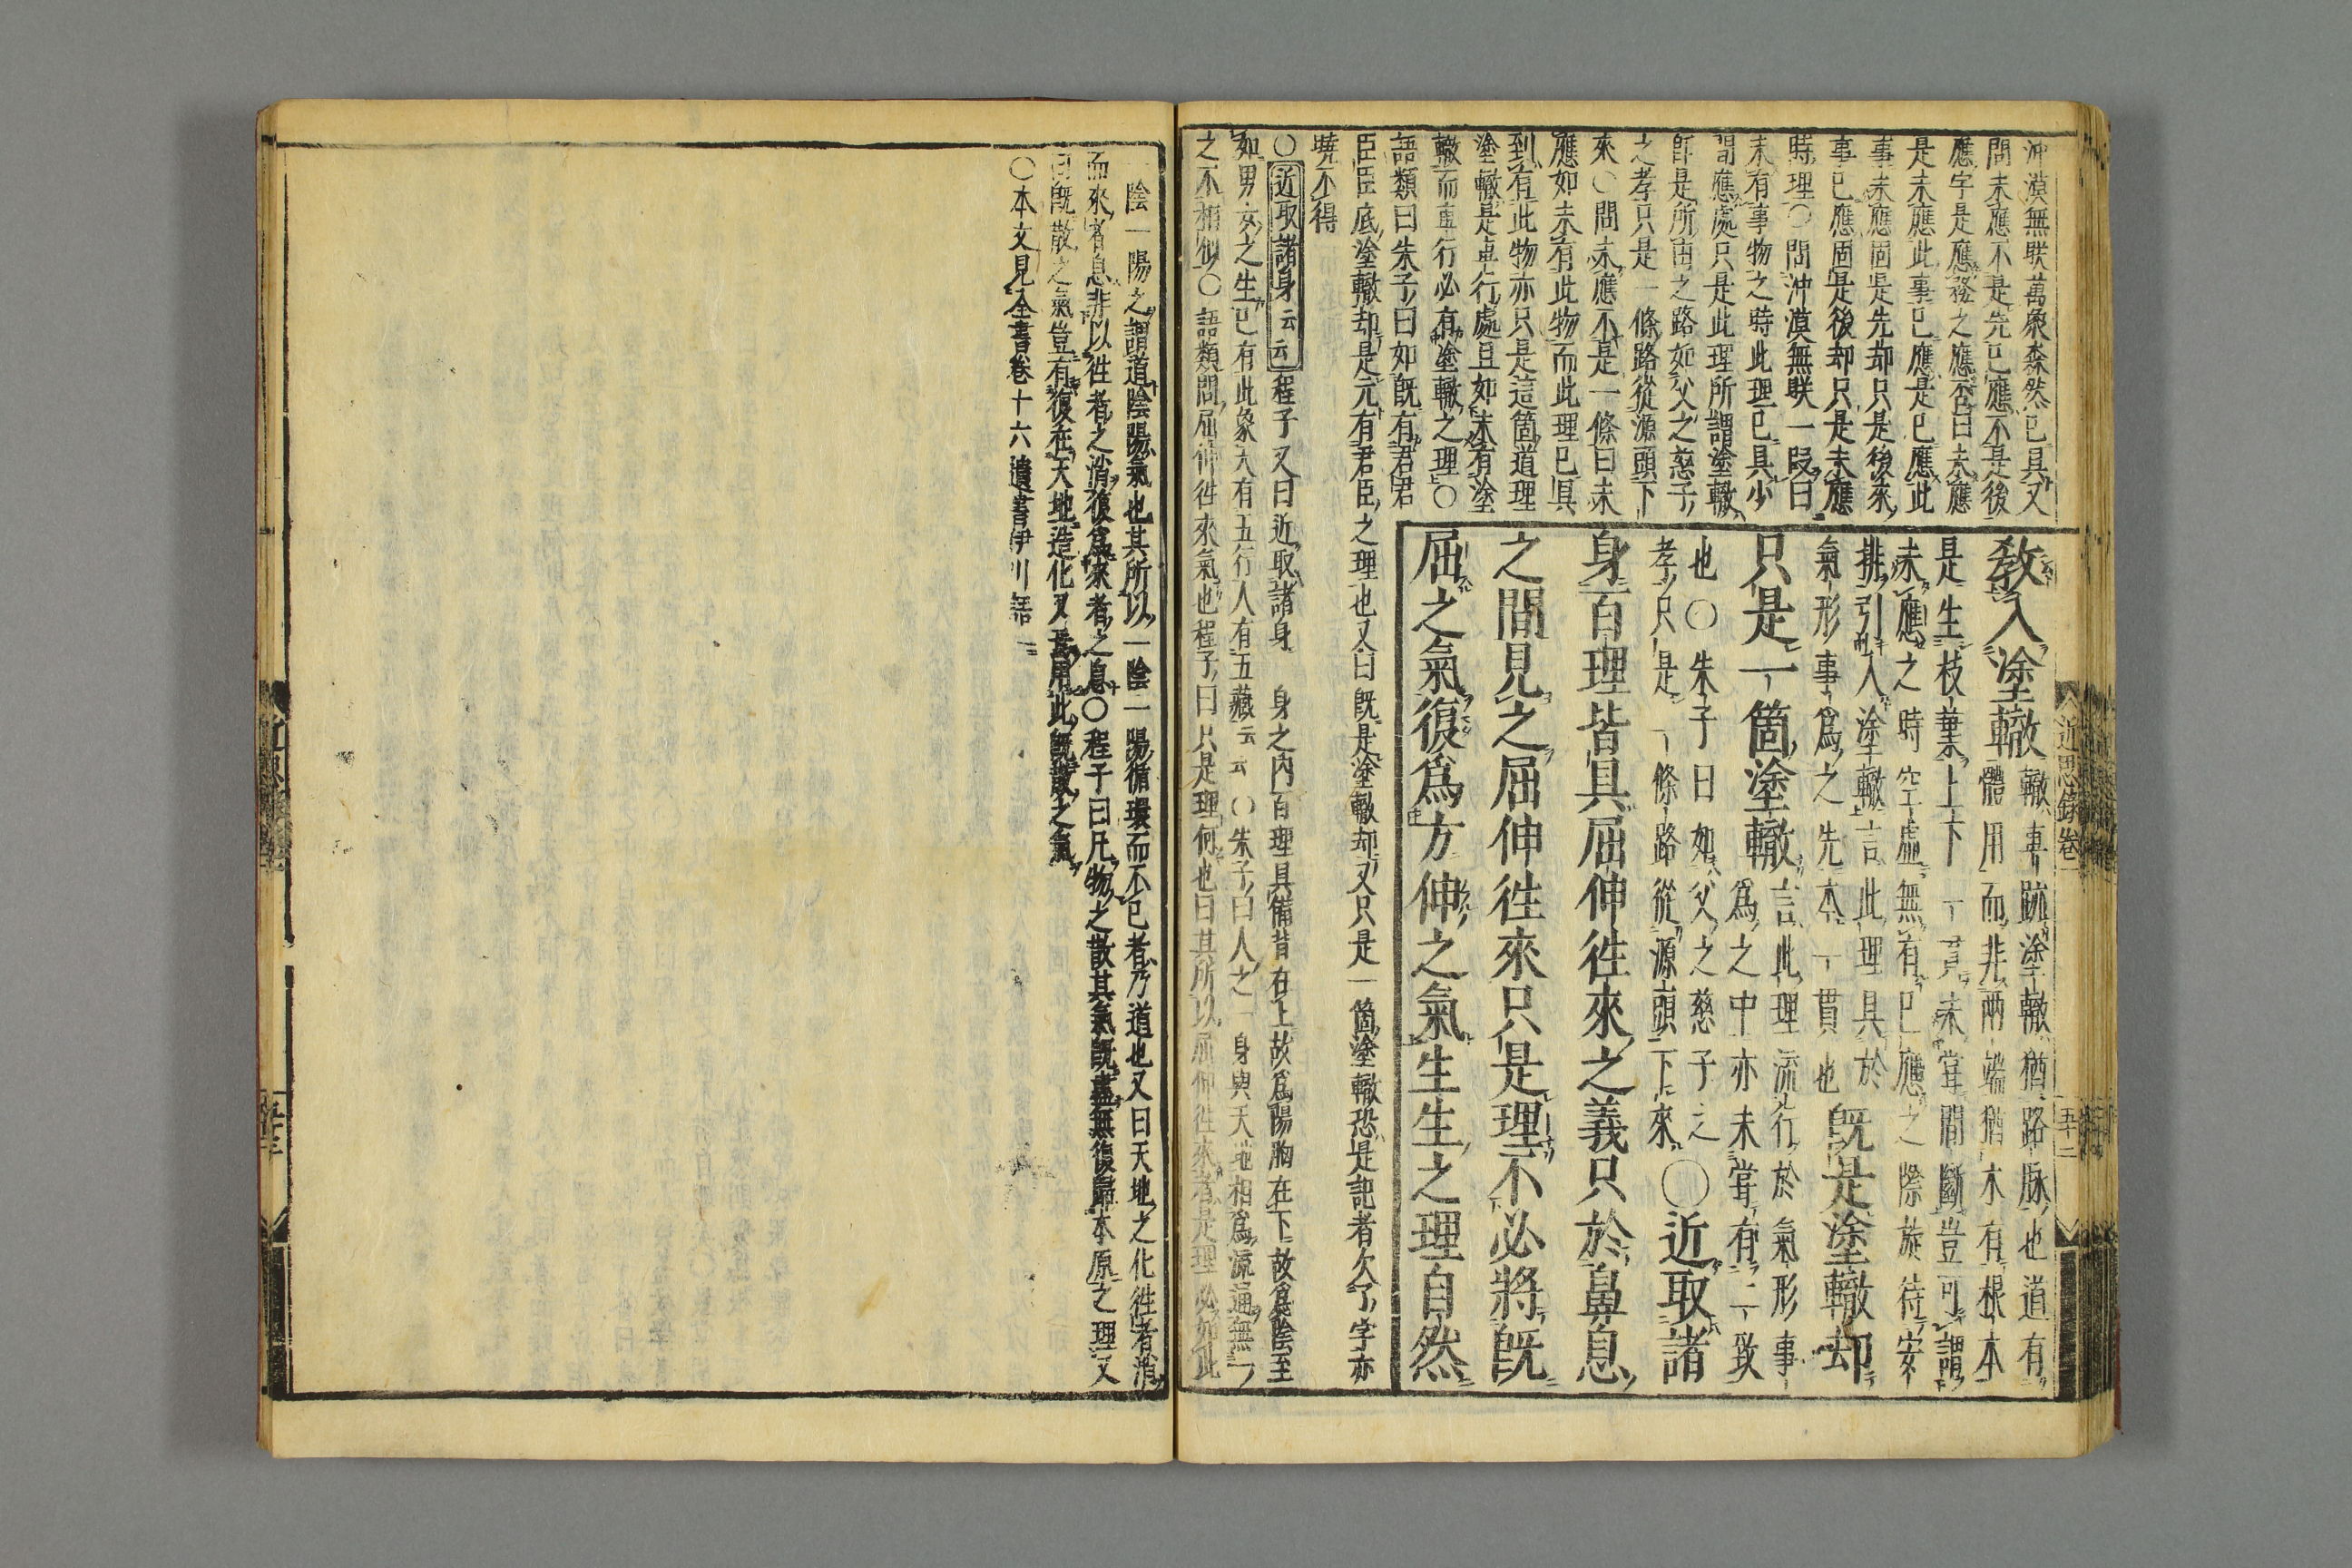 沖漠無朕萬象森然已具又
問未應不是先已應不是後
應字是應務之應否曰未應
是未應此事已應是已應此
事未應固是先却只是後來
事已應固是後却只是未應
時理○問沖漠無朕一段曰
未有事物之時此理已具少
間應處只是此理所謂塗轍
即是所由之路如父之慈子
之孝只是一條路從源頭下
來○問未應不是一條曰未
應如未有此物而此理已具
到有此物亦只是這箇道理
塗轍是車行處且如未有塗
轍而車行必有塗轍之理○
語類曰朱子曰如既有君君
臣臣底塗轍却是元有君臣之理也又曰既是塗轍却又只是一箇塗轍恐是記者欠了字亦
曉不得
教入塗轍
轍事跡塗轍猶路脉也道有
體用而非兩端猶木有根本
是生枝葉上下一貫未甞間斷豈可謂
未應之時空虛無有已應之際旋待安
排引入塗轍言此理具於
氣形事爲之先本一貫也
既是塗轍却
只是一箇塗轍
言此理流行於氣形事
爲之中亦未甞有二致
也○朱子曰如父之慈子之
孝只是一條路從源頭下來
○近取諸
身百理皆具屈伸徃來之義只於鼻息
之間見之屈伸徃來只是理不必將既
屈之氣復爲方伸之氣生生之理自然
○近取諸身云云程子又曰近取諸身 身之內百理具備背在上故爲陽胸在下故爲陰至
如男女之生已有此象天有五行人有五藏云云○朱子曰人之一身與天地相爲流通無一
之不相似○語類問屈伸徃來氣也程子曰只是理何也曰其所以屈伸徃來者是理必如此
近思錄卷一
五十二
一陰一陽之謂道陰陽氣也其所以一陰一陽循環而不已者乃道也又曰天地之化徃者消
而來者息非以徃者之消復爲來者之息○程子曰凡物之散其氣既盡無復歸本原之理又
曰既散之氣豈有復在天地造化又焉用此既散之氣
○本文見全書卷十六遺書伊川語一